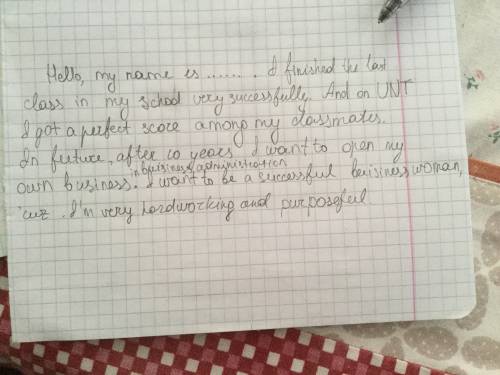 Hello, my name is ....... . I finished the last
class in my school very successfully. And on UNT
I got a perfect score among my classmates.
In future, after 10 years I want to open my
in business administration
own business. I want to be a successful buisiness woman,
'cuz . I'm very hardworking and purposeful